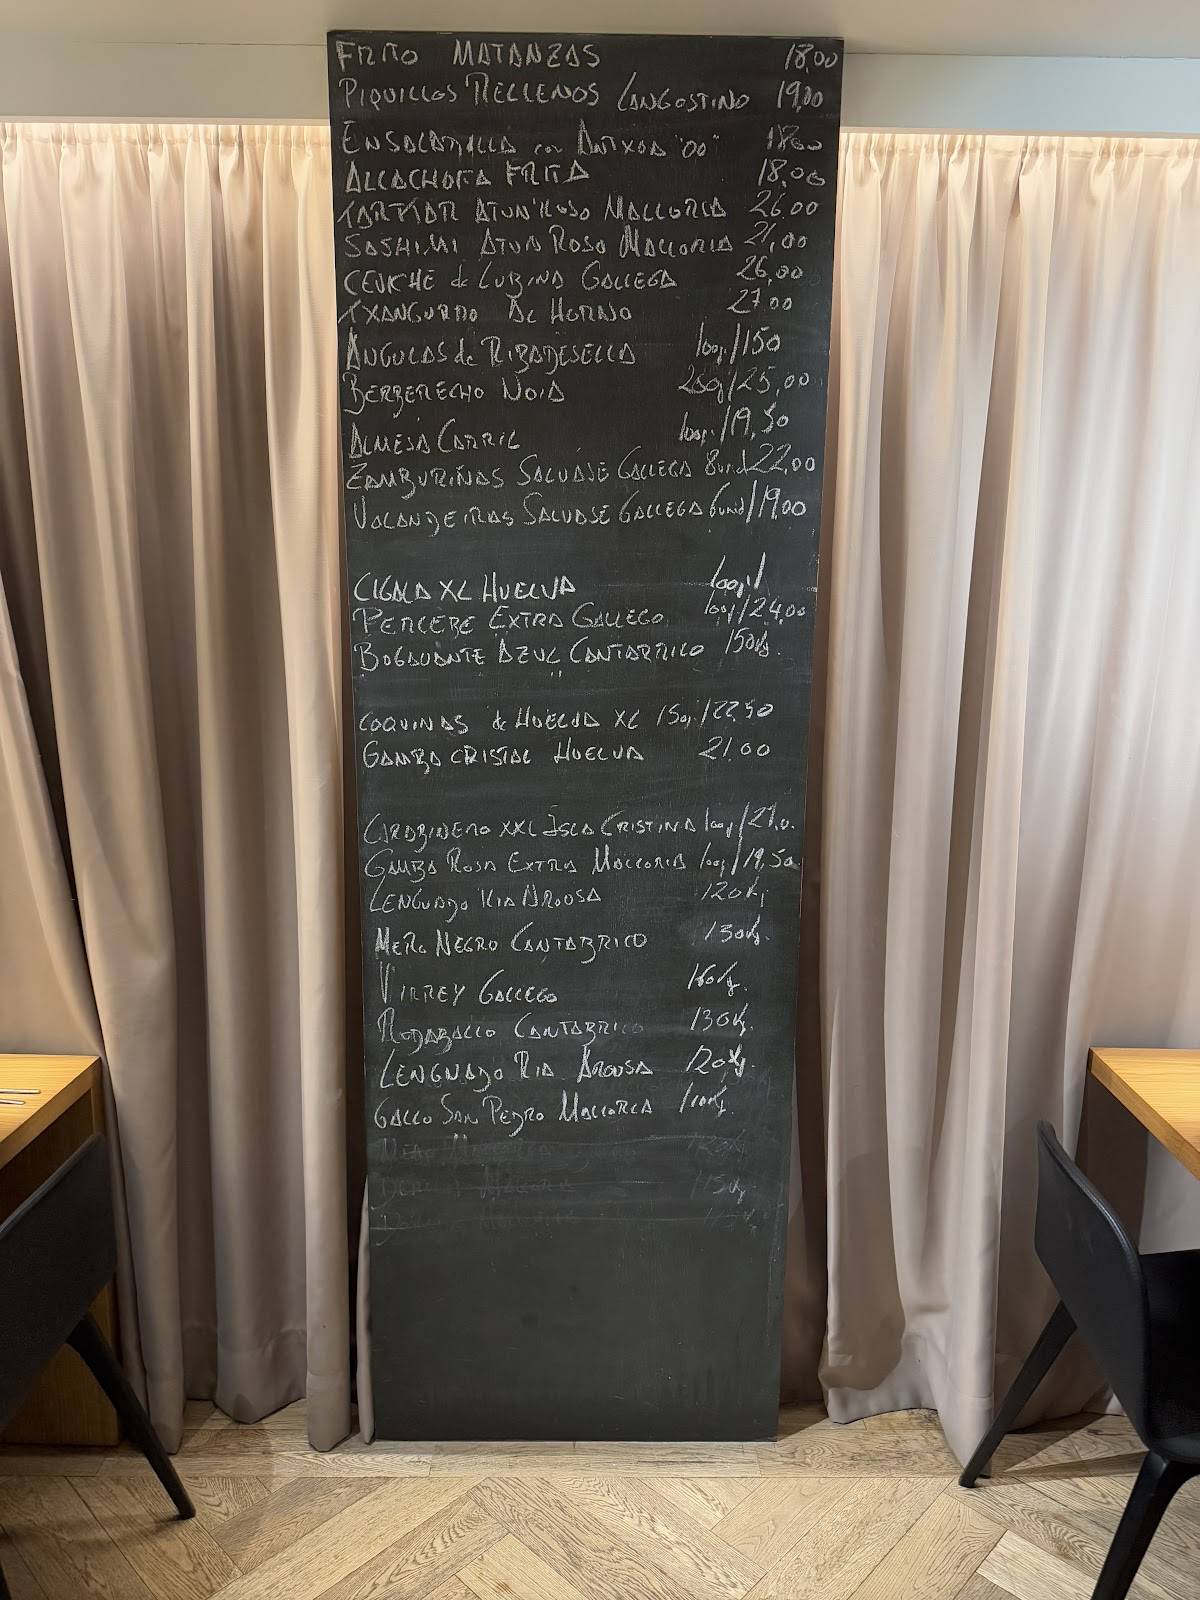 FRITO MATANZAS 18,00
PIQUILLOS RELLENOS LANGOSTINO 19,00
ENSALADILLA con ANTXOA "00" 18,00
ALCACHOFA FRITA 18,00
TARTAR ATUN ROJO MALLORCA 26,00
SASHIMI ATUN ROJO MALLORCA 21,00
CEVICHE de LUBINA GALLEGA 26,00
TXANGURRO AL HORNO 27,00
ANGULAS de RIBADESELLA 100g/150
BERBERECHO NOIA 250g/25,00
ALMEJA CARRIL 100g/19,50
ZAMBURIÑAS SALVAJE GALLEGA 8und 22,00
VOLANDEIRAS SALVAJE GALLEGA 6und/19,00
CIGALA XL HUELVA 100g/
PERCEBE EXTRA GALLEGO 100g/24,00
BOGAVANTE AZUL CANTABRICO 150kg.
COQUINAS de HUELVA XL 150g/22,50
GAMBA CRISTAL HUELVA 21,00
CARABINERO XXL ISLA CRISTINA 100g/27,0.
GAMBA ROJA EXTRA MALLORCA 100g/19,50
LENGUADO RIA AROUSA 120kg
MERO NEGRO CANTABRICO 130kg.
VIRREY GALLEGO 160kg.
RODABALLO CANTABRICO 130kg.
LENGUADO RIA AROUSA 120kg.
GALLO SAN PEDRO MALLORCA 110kg.